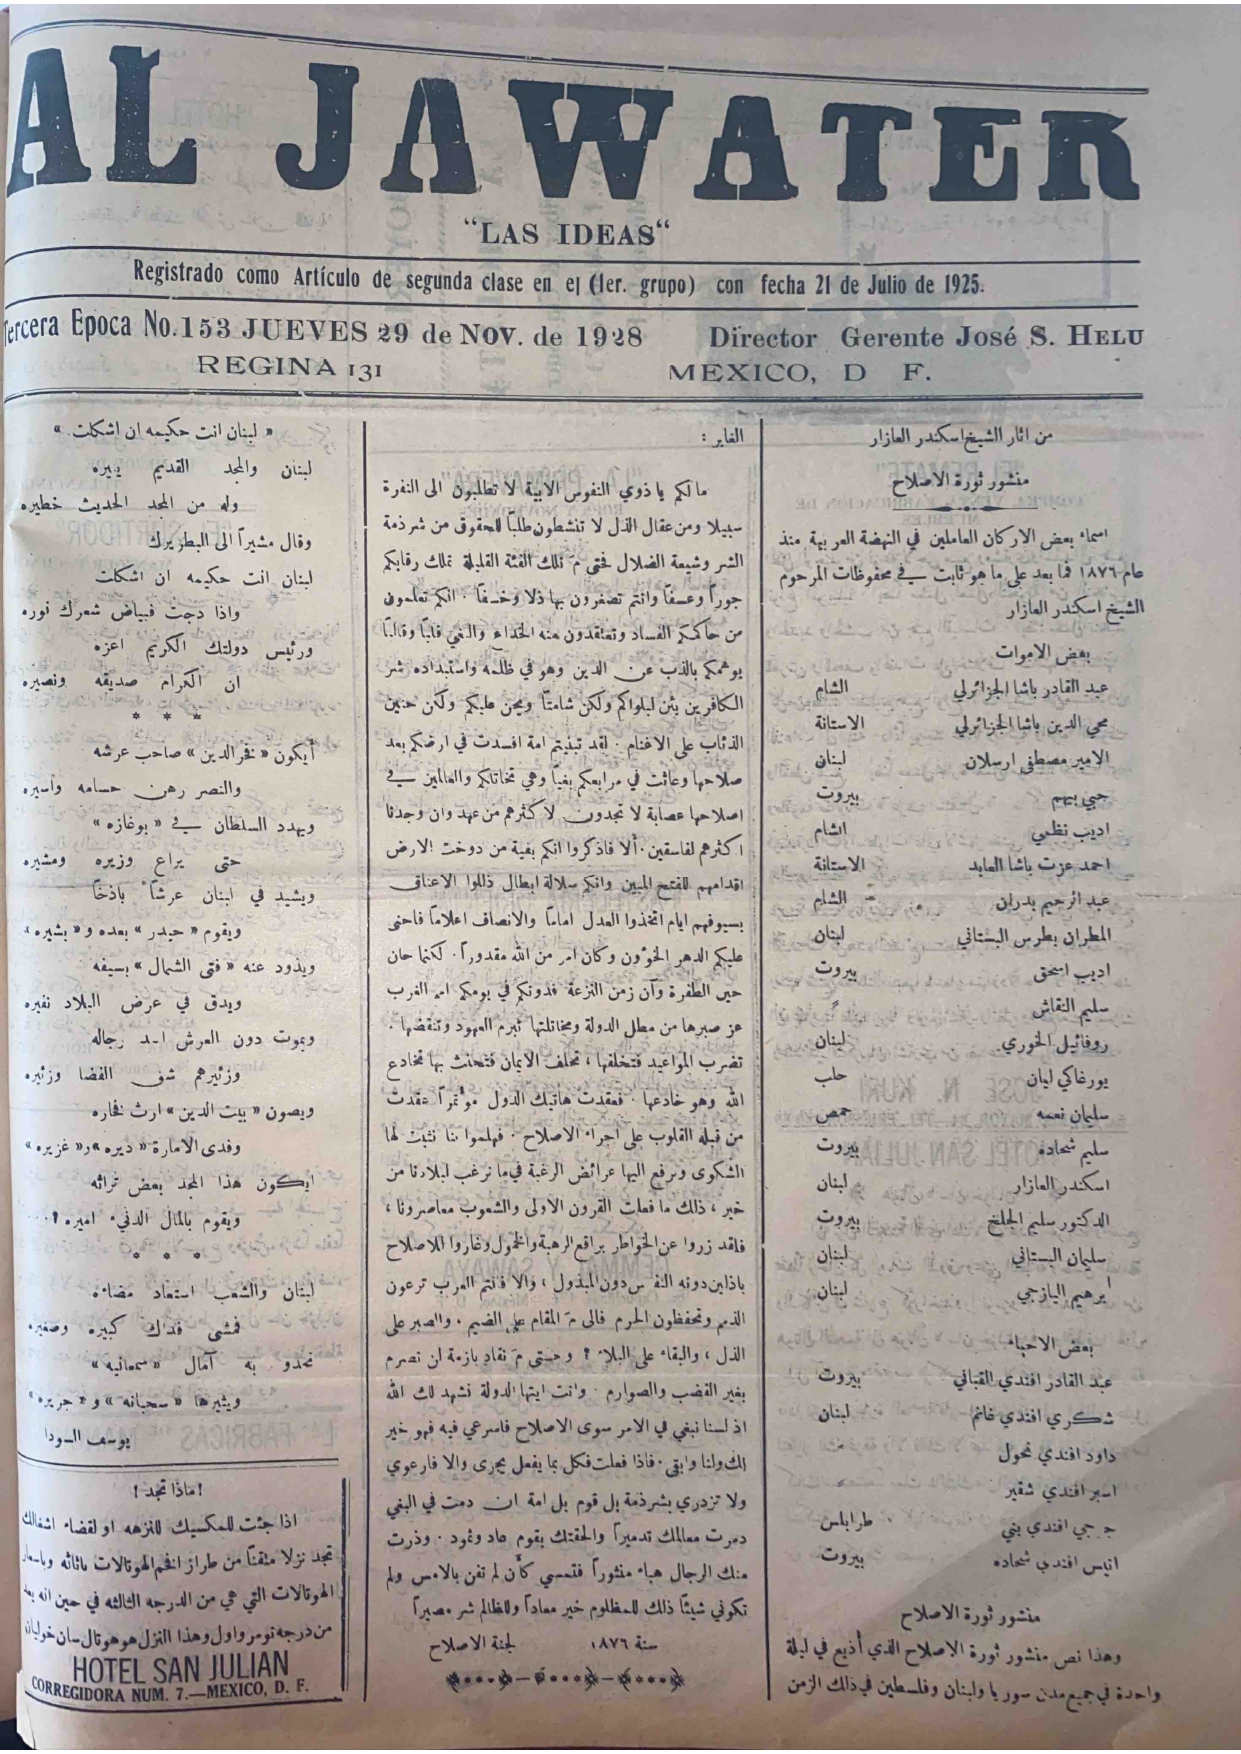 AL JAWATER
"LAS IDEAS"
Registrado como Artículo de segunda clase en el (1er. grupo) con fecha 21 de Julio de 1925.
Tercera Epoca No. 153 JUEVES 29 de NOV. de 1928 Director Gerente José S. HELU
REGINA 131 MEXICO, D F.
من اثار الشيخ اسكندر العازار
منشور ثورة الاصلاح
اسماء بعض الاركان العاملين في النهضة العربية منذ
عام ١٨٧٦ فما بعد على ما هو ثابت في محفوظات المرحوم
الشيخ اسكندر العازار
بعض الاموات
عبد القادر باشا الجزائرلي الشام
محي الدين باشا الجزائرلي الاستانة
الامير مصطفى ارسلان لبنان
حبي بيهم بيروت
اديب نظمي الشام
احمد عزت باشا العابد الاستانة
عبد الرحيم بدران الشام
المطران بطرس البستاني لبنان
اديب اسحق بيروت
سليم النقاش "
روفائيل الخوري لبنان
يورغاكي ليان حلب
سليمان نعمه حمص
سليم شحاده بيروت
اسكندر العازار لبنان
الدكتور سليم الجلخ بيروت
سليمان البستاني لبنان
ابرهيم اليازجي لبنان
بعض الاحياء
عبد القادر افندي القباني بيروت
شكري افندي غانم لبنان
داود افندي نحول "
اسبر افندي شقير
جرجي افندي يني طرابلس
انيس افندي شحاده بيروت
منشور ثورة الاصلاح
وهذا نص منشور ثورة الاصلاح الذي أذيع في ليلة
واحدة في جميع مدن سوريا ولبنان وفلسطين في ذلك الزمن
الغابر :
ما لكم يا ذوي النفوس الابية لا تطلبون الى النفرة
سبيلا ومن عقال الذل لا تنشطون طلباً للحقوق من شرذمة
الشر وشيعة الضلال فحتى مَ تلك الفئة القليلة تملك رقابكم
جوراً وعسفاً وانتم تصغرون بها ذلا وخسفاً . انكم تعلمون
من حاكمكم الفساد وتعتقدون منه الخداع والبغي قلباً وقالباً
يوهمكم بالذب عن الدين وهو في ظلمه واستبداده شر
الكافرين يئن لبلواكم ولكن شامتاً ويحن عليكم ولكن حنين
الذئاب على الاغنام . لقد تبذيتم امة افسدت في ارضكم بعد
صلاحها وعاثت في مرابعكم بغياً وهي تخاتلكم والعالمين في
اصلاحها عصابة لا تجدون لاكثرهم من عهد وان وجدنا
اكثرهم لفاسقين . ألا فاذكروا انكم بقية من دوخت الارض
اقدامهم للفتح المبين وانكم سلالة ابطال ذللوا الاعناق
بسيوفهم ايام اتخذوا العدل اماماً والانصاف اعلاماً فاحنى
عليكم الدهر الخؤون وكان امر من الله مقدوراً . لكنما حان
حين الطفرة وآن زمن النزعة فدونكم في يومكم امم الغرب
عز صبرها من مطل الدولة ومخاتلتها تبرم العهود وتنقضها .
تضرب المواعيد فتخلفها ، تحلف الايمان فتحنث بها تخادع
الله وهو خادعها . فعقدت هاتيك الدول مؤتمراً عقدت
من قبله القلوب على اجراء الاصلاح . فهلموا بنا نثبت لها
الشكوى ونرفع اليها عرائض الرغبة في ما نرغب لبلادنا من
خير ، ذلك ما فعلت القرون الاولى والشعوب معاصرونا ،
فلقد زروا عن الخواطر براقع الرهبة والخمول وغاروا للاصلاح
باذلين دونه النفس دون المبذول ، والا فانتم العرب ترعون
الذمم وتحفظون الحرم فالى مَ المقام على الضيم . والصبر على
الذل ، والبقاء على البلاء ؟ وحتى مَ نقاد بازمة لن نصرم
بغير القضب والصوارم . وانت ايتها الدولة نشهد لك الله
اذ لسنا نبغي في الامر سوى الاصلاح فاسرعي فيه فهو خير
لك ولنا وابقى . فاذا فعلت فكل بما يفعل يجزى والا فارعوي
ولا تزدري بشرذمة بل قوم بل امة ان دمت في البغي
دمرت معالمك تدميراً والحقتك بقوم عاد وثمود . وذرت
منك الرجال هباء منثوراً فتمسي كأن لم تغن بالامس ولم
تكوني شيئاً ذلك للمظلوم خير معاداً وللظالم شر مصيراً
سنة ١٨٧٦ لجنة الاصلاح
« لبنان انت حكيمه ان اشكلت »
لبنان والمجد القديم ينيره
وله من المجد الحديث خطيره
وقال مشيراً الى البطريرك
لبنان انت حكيمه ان اشكلت
واذا دجت فبياض شعرك نوره
ورئيس دولتك الكريم اعزه
ان الكرام صديقه ونصيره
* * *
أيكون « فخر الدين » صاحب عرشه
والنصر رهن حسامه وأسيره
ويهدد السلطان في « بوغازه »
حتى يراع وزيره ومشيره
ويشيد في لبنان عرشاً باذخاً
ويقوم « حيدر » بعده و« بشيره »
ويذود عنه « فتى الشمال » بسيفه
ويدق في عرض البلاد نفيره
ويموت دون العرش اسد رجاله
وزئيرهم شق الفضا وزئيره
ويصون « بيت الدين » ارث فخاره
وفدى الامارة « ديره » و« غزيره »
ايكون هذا المجد بعض تراثه
ويقوم بالمال الدنيء اميره ؟....
* * *
لبنان والشعب استعاد مضاءه
فمشى فداك كبيره وصغيره
تحدو به آمال « سمعانيه »
ويثيرها « سحبانه » و« جريره »
يوسف السودا
! ماذا تجد !
اذا جئت للمكسيك للنزهه او لقضاء اشغالك
تجد نزلا متقناً من طراز افخم الهوتالات باثاثه وباسعار
الهوتالات التي هي من الدرجه الثالثه في حين انه يعد
من درجه نومر واول وهذا النزل هو هوتال سان خوليان
HOTEL SAN JULIAN
CORREGIDORA NUM. 7.—MEXICO, D. F.